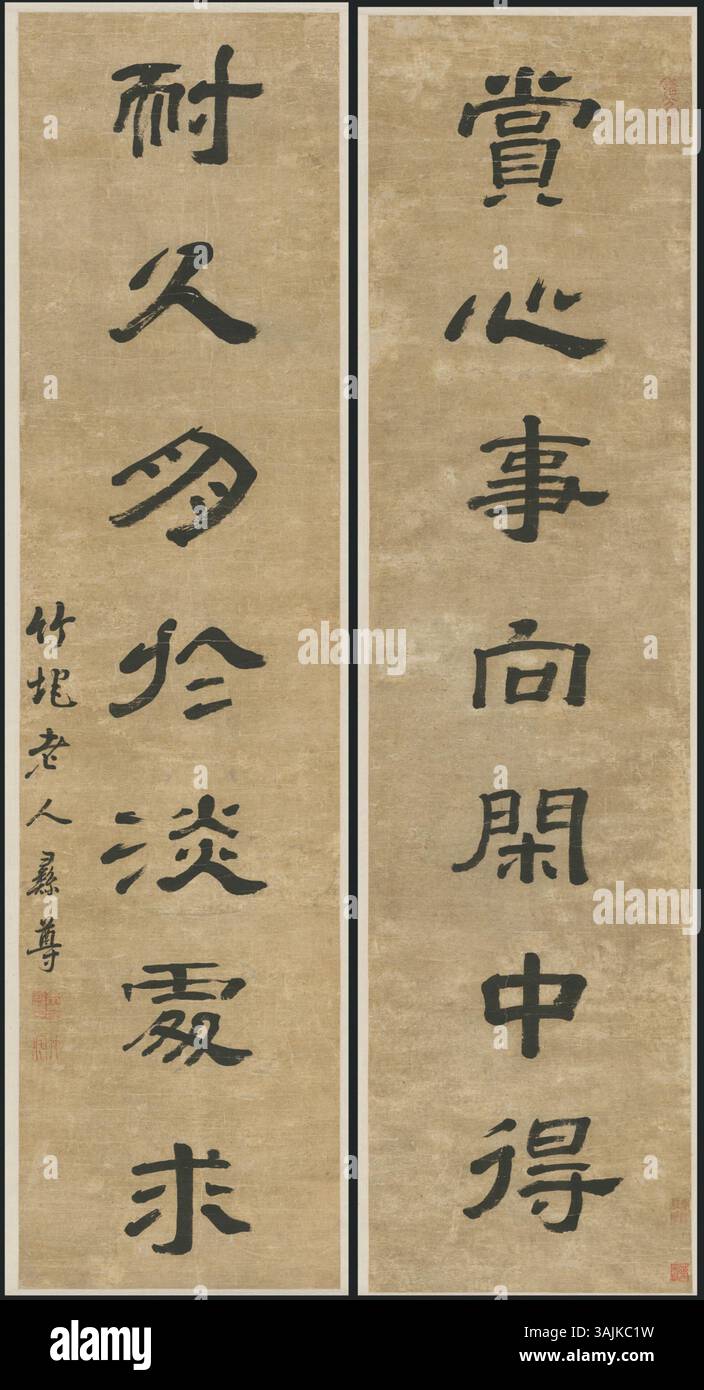 賞心事向閑中得
耐久朋於淡處求
竹垞老人彝尊
alamy
alamy
alamy
alamy
Image ID: 3AJKC1W
www.alamy.com